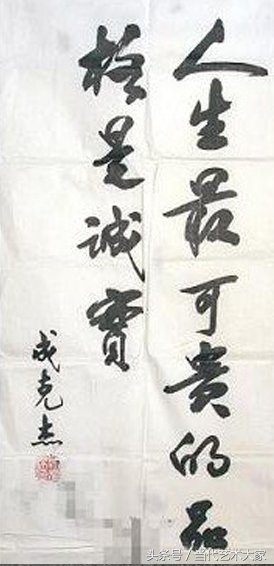 人生最可貴的品
格是誠實
成克杰
头条号 / 当代艺术大家